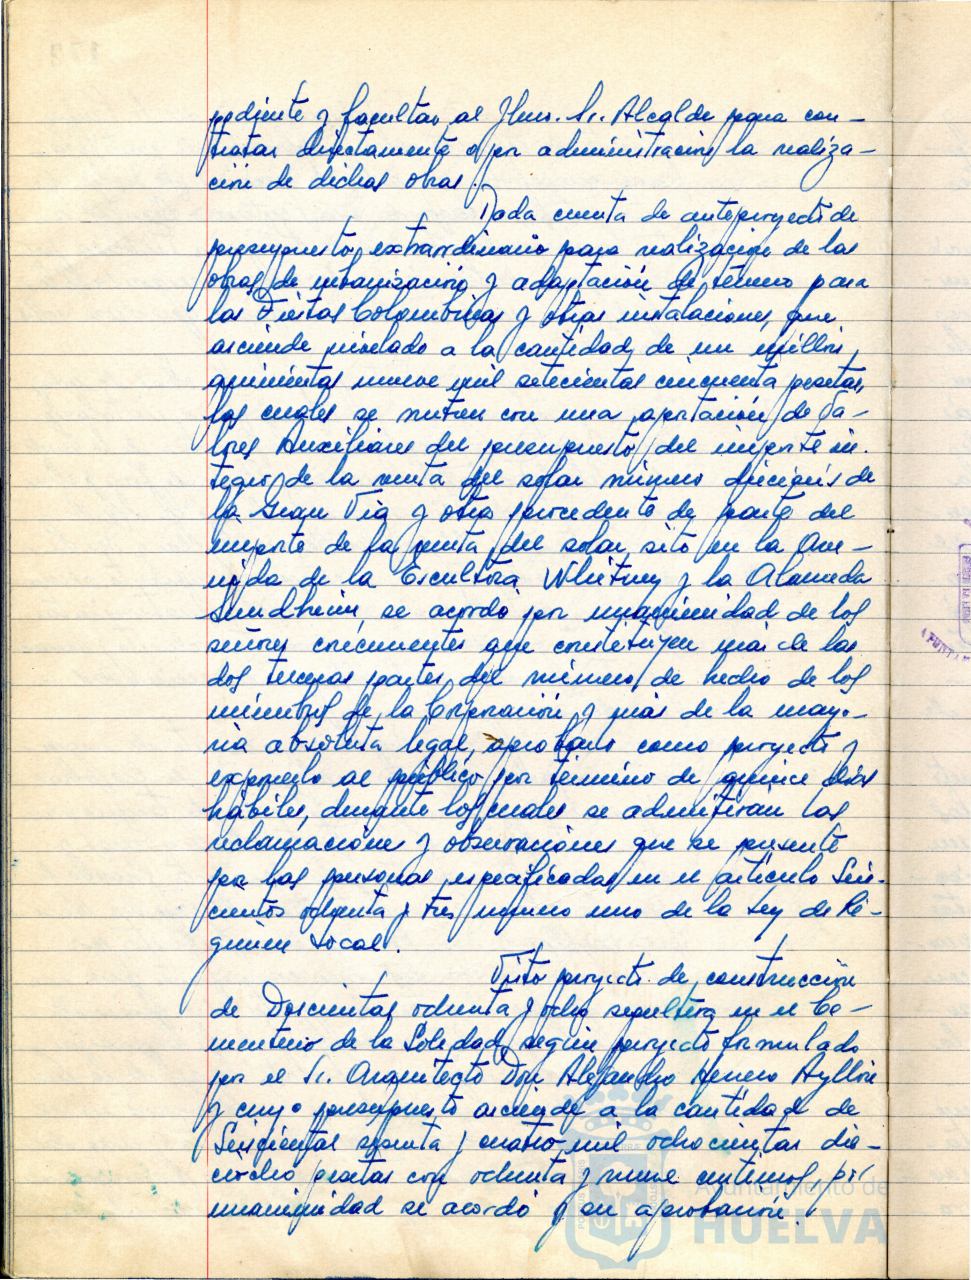 pediente y facultar al Ilmo. Sr. Alcalde para con-
tratar directamente o por administración la realiza-
ción de dichas obras.
Dada cuenta de anteproyecto de
presupuesto extraordinario para realización de las
obras de urbanización y adaptación de terreno para
las Fiestas Colombinas y otras instalaciones, que
asciende nivelado a la cantidad de un millón,
quinientas nueve mil setecientas cincuenta pesetas,
las cuales se nutren con una aportación de Va-
lores Auxiliares del presupuesto, del importe ín-
tegro de la venta del solar número dieciseis de
la Gran Via y otra procedente de parte del
importe de la venta del solar sito en la Ave-
nida de la Escultora Whitney y la Alameda
Sundheim, se acordó por unanimidad de los
señores concurrentes que constituyen más de las
dos terceras partes del número de hecho de los
miembros de la Corporación y más de la mayo-
ría absoluta legal, aprobarlo como proyecto y
exponerlo al público por término de quince días
hábiles, durante los cuales se admitirán las
reclamaciones y observaciones que se presente
por las personas especificadas en el artículo Seis-
cientos ochenta y tres número uno de la Ley de Ré-
gimen Local.
Visto proyecto de construcción
de Doscientas ochenta y ocho sepultura en el Ce-
menterio de la Soledad, según proyecto formulado
por el Sr. Arquitecto Don Alejandro Herrero Ayllón
y cuyo presupuesto asciende a la cantidad de
Seiscientas sesenta y cuatro mil ochocientas die-
ciocho pesetas con ochenta y nueve céntimos, por
unanimidad se acordó su aprobación.
Ayuntamiento de
HUELVA